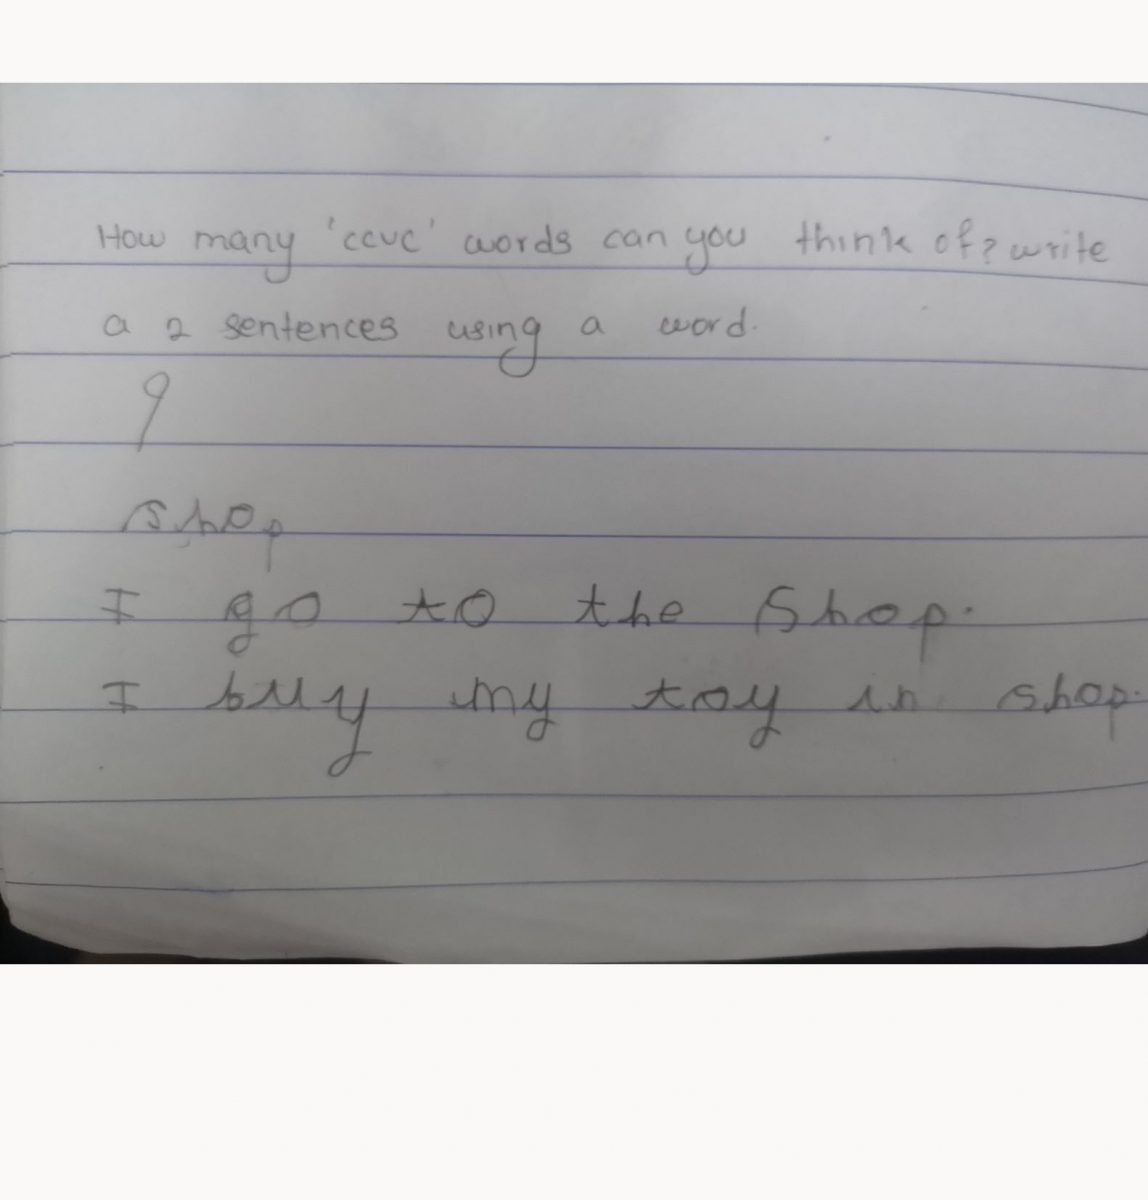 How many 'ccvc' words can you think of? write
a 2 sentences using a word.
9
shop
I go to the Shop.
I buy my toy in shop.